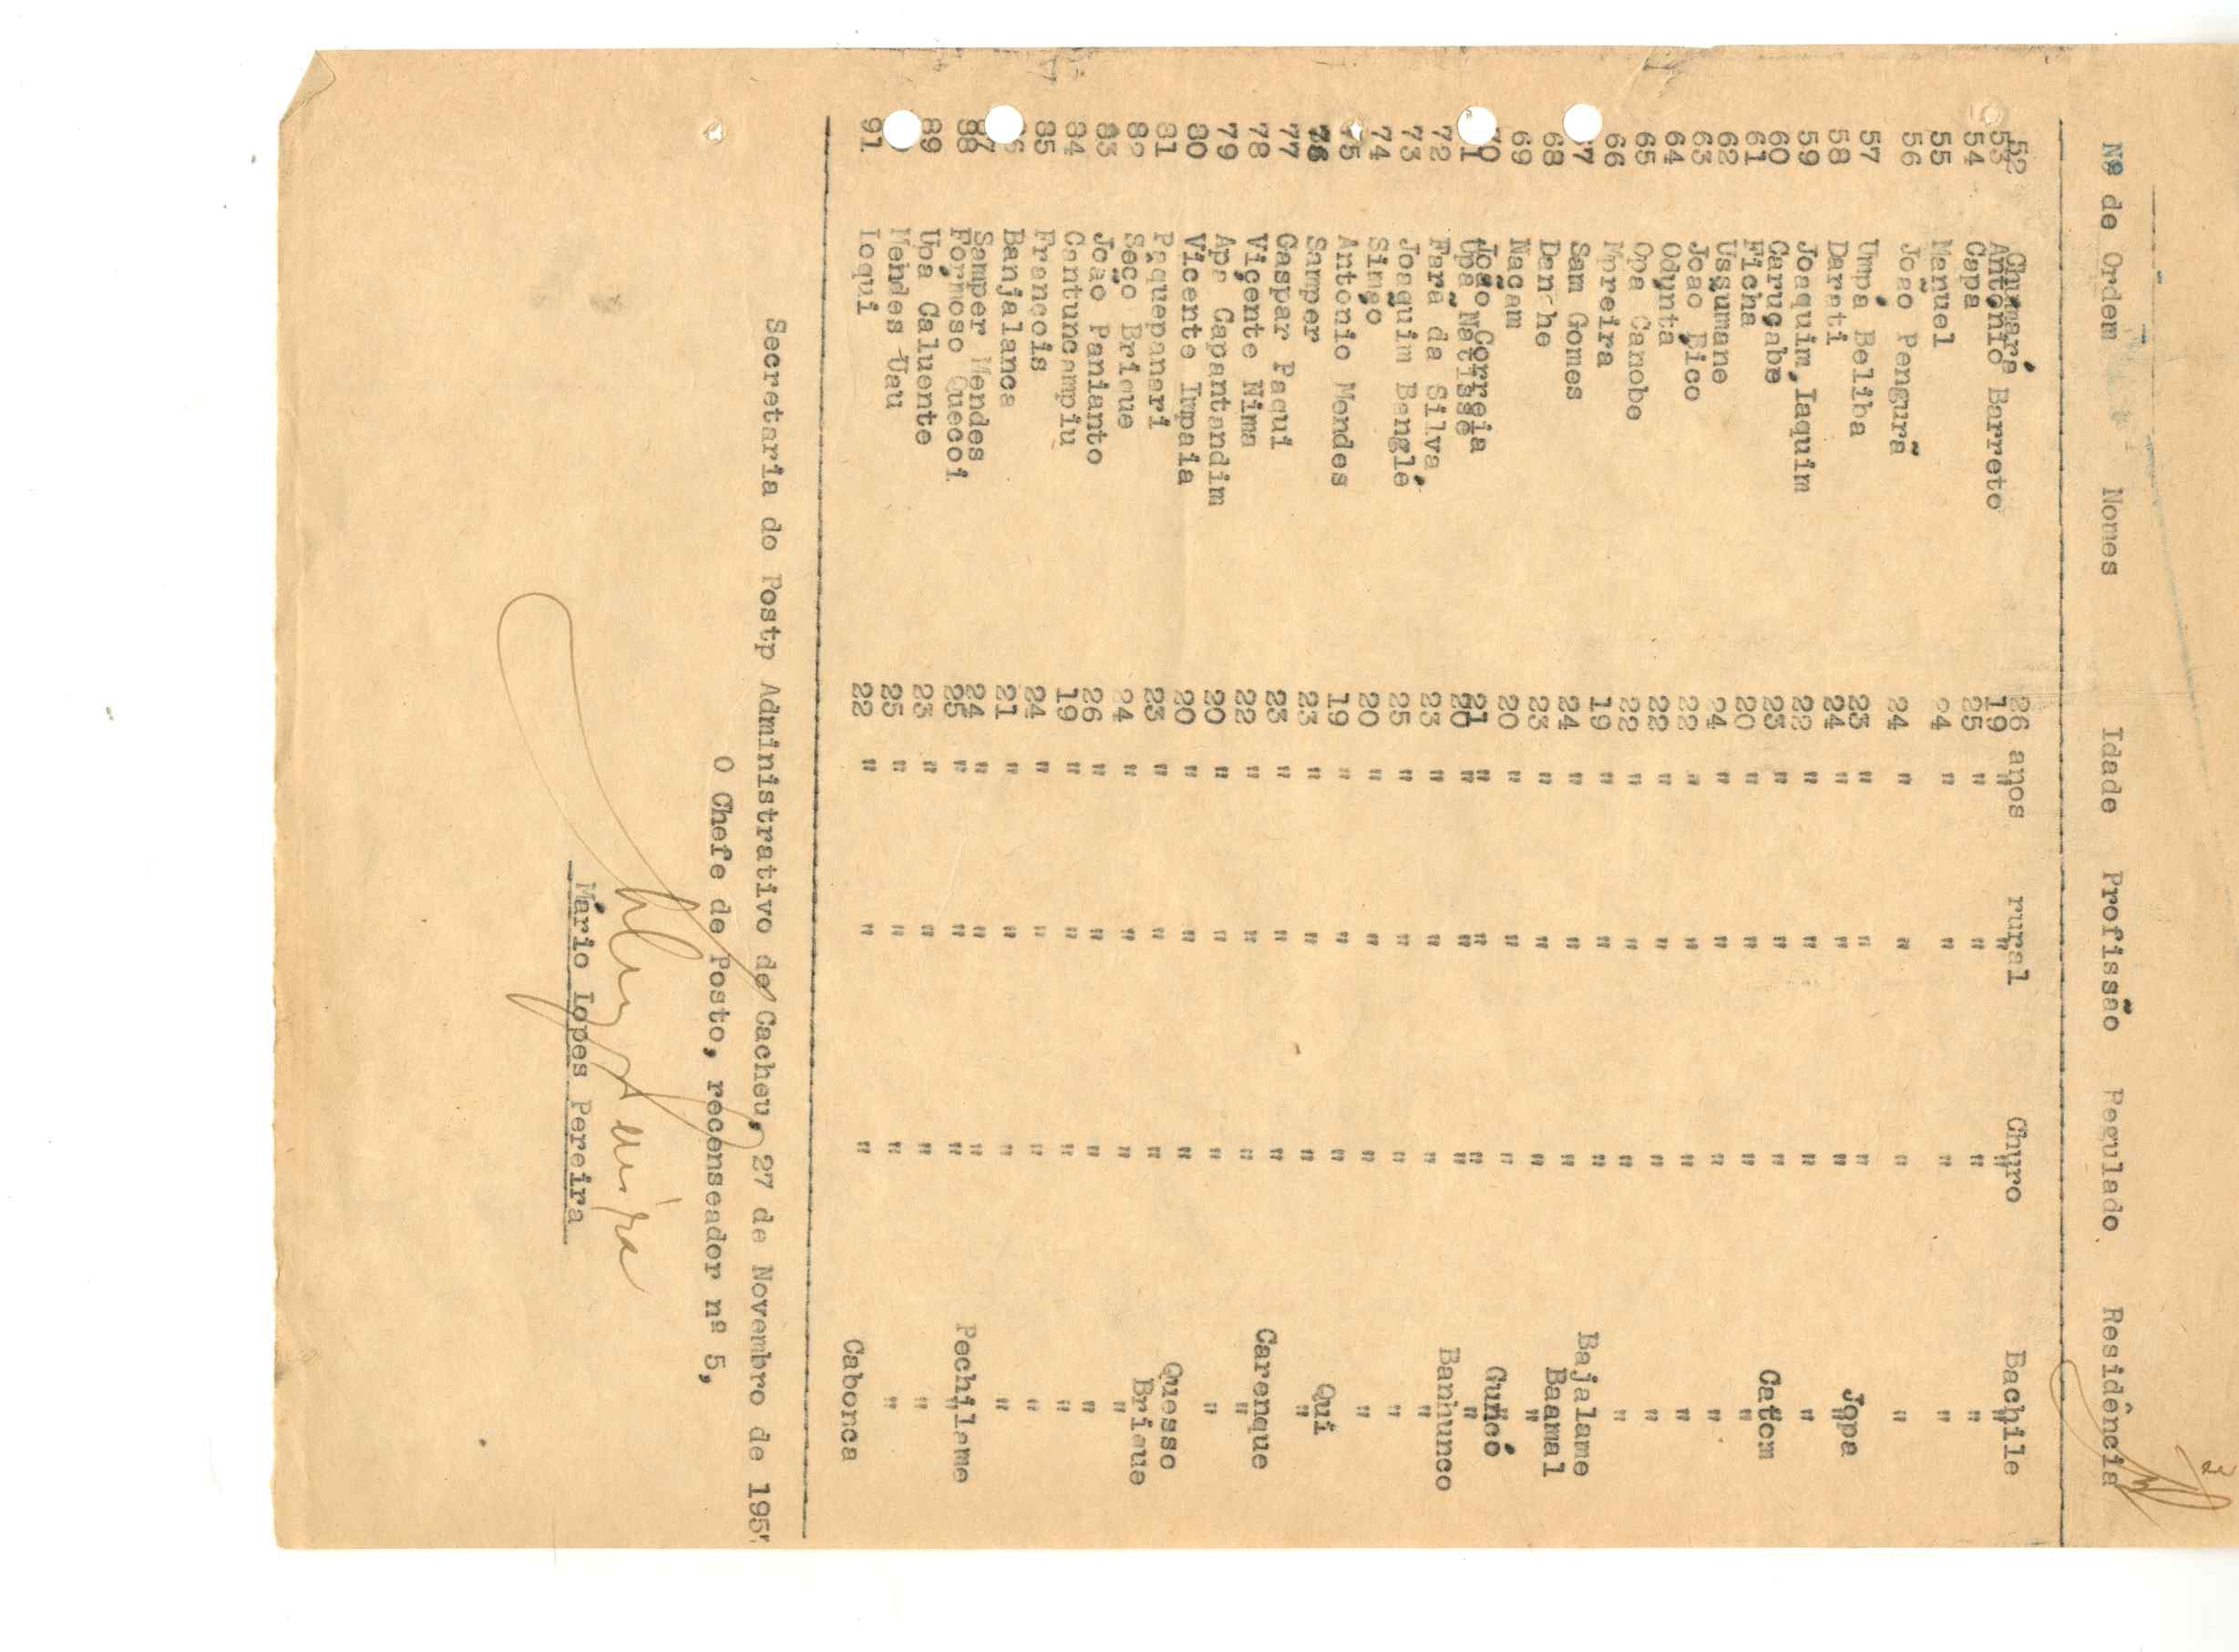 Nº de Ordem Nomes Idade Profissão Regulado Residência
52 Chumará 26 anos rural Churo Bachile
53 António Barreto 19 " " " "
54 Capa 25 " " " "
55 Manuel 24 " " " "
56 João Pengurã 24 " " " "
57 Umpá Beliba 23 " " " Jopa
58 Darati 24 " " " "
59 Joaquim Iaquim 22 " " " "
60 Caruçabe 23 " " " Catom
61 Ficha 20 " " " "
62 Ussumane 24 " " " "
63 João Bico 22 " " " "
64 Odunta 22 " " " "
65 Opa Camobe 22 " " " "
66 Moreira 19 " " " Bajalame
7 Sam Gomes 24 " " " Baamal
68 Danche 23 " " " "
69 Nacam 20 " " " Guncó
70 João Correia 21 " " " "
1 Upa Natisse 20 " " " Banhunco
72 Fara da Silva 23 " " " "
73 Joaquim Banglé 25 " " " "
74 Singo 20 " " " "
75 Antonio Mendes 19 " " " Qui
76 Samper 23 " " " "
77 Gaspar Paqui 23 " " " Carenque
78 Vicente Nima 22 " " " "
79 Apa Capantandim 20 " " " "
80 Vicente Impaia 20 " " " Quesso
81 Paquepanari 23 " " " Brique
82 Seco Brique 24 " " " "
83 João Panianto 26 " " " "
84 Cantuncampiu 19 " " " "
85 Francois 24 " " " "
6 Banjalanca 21 " " " "
87 Samper Mendes 24 " " " Pechilame
88 Formoso Quecoi 25 " " " "
89 Upa Caluente 23 " " " "
Mendes Uau 25 " " " "
91 Ioqui 22 " " " Caborca
Secretaria do Postp Administrativo de Cacheu, 27 de Novembro de 195
O Chefe de Posto, recenseador nº 5,
Mário Lopes Pereira